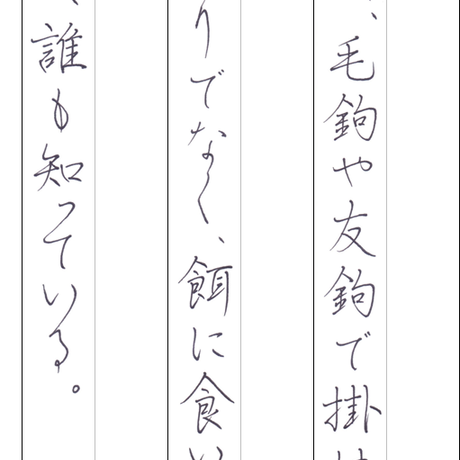 、毛鉤や友鉤で掛け
りでなく、餌に食い
、誰も知っている。